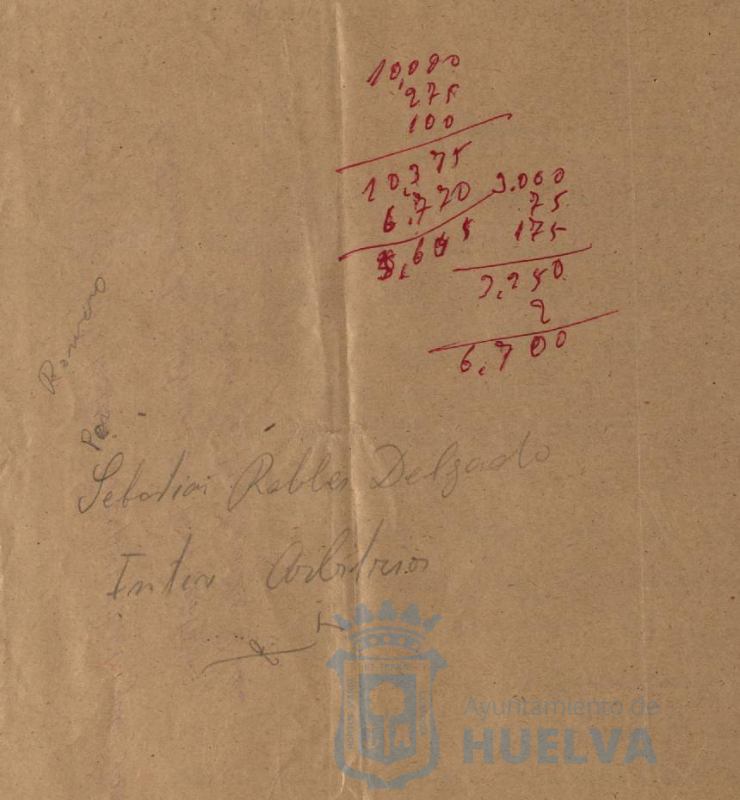 10,000
275
100
10,375
6,770
3,605
3.000
75
175
3,250
2
6,700
Romero
Sebastian Robles Delgado
Inter Arbitrios
Ayuntamiento de
HUELVA